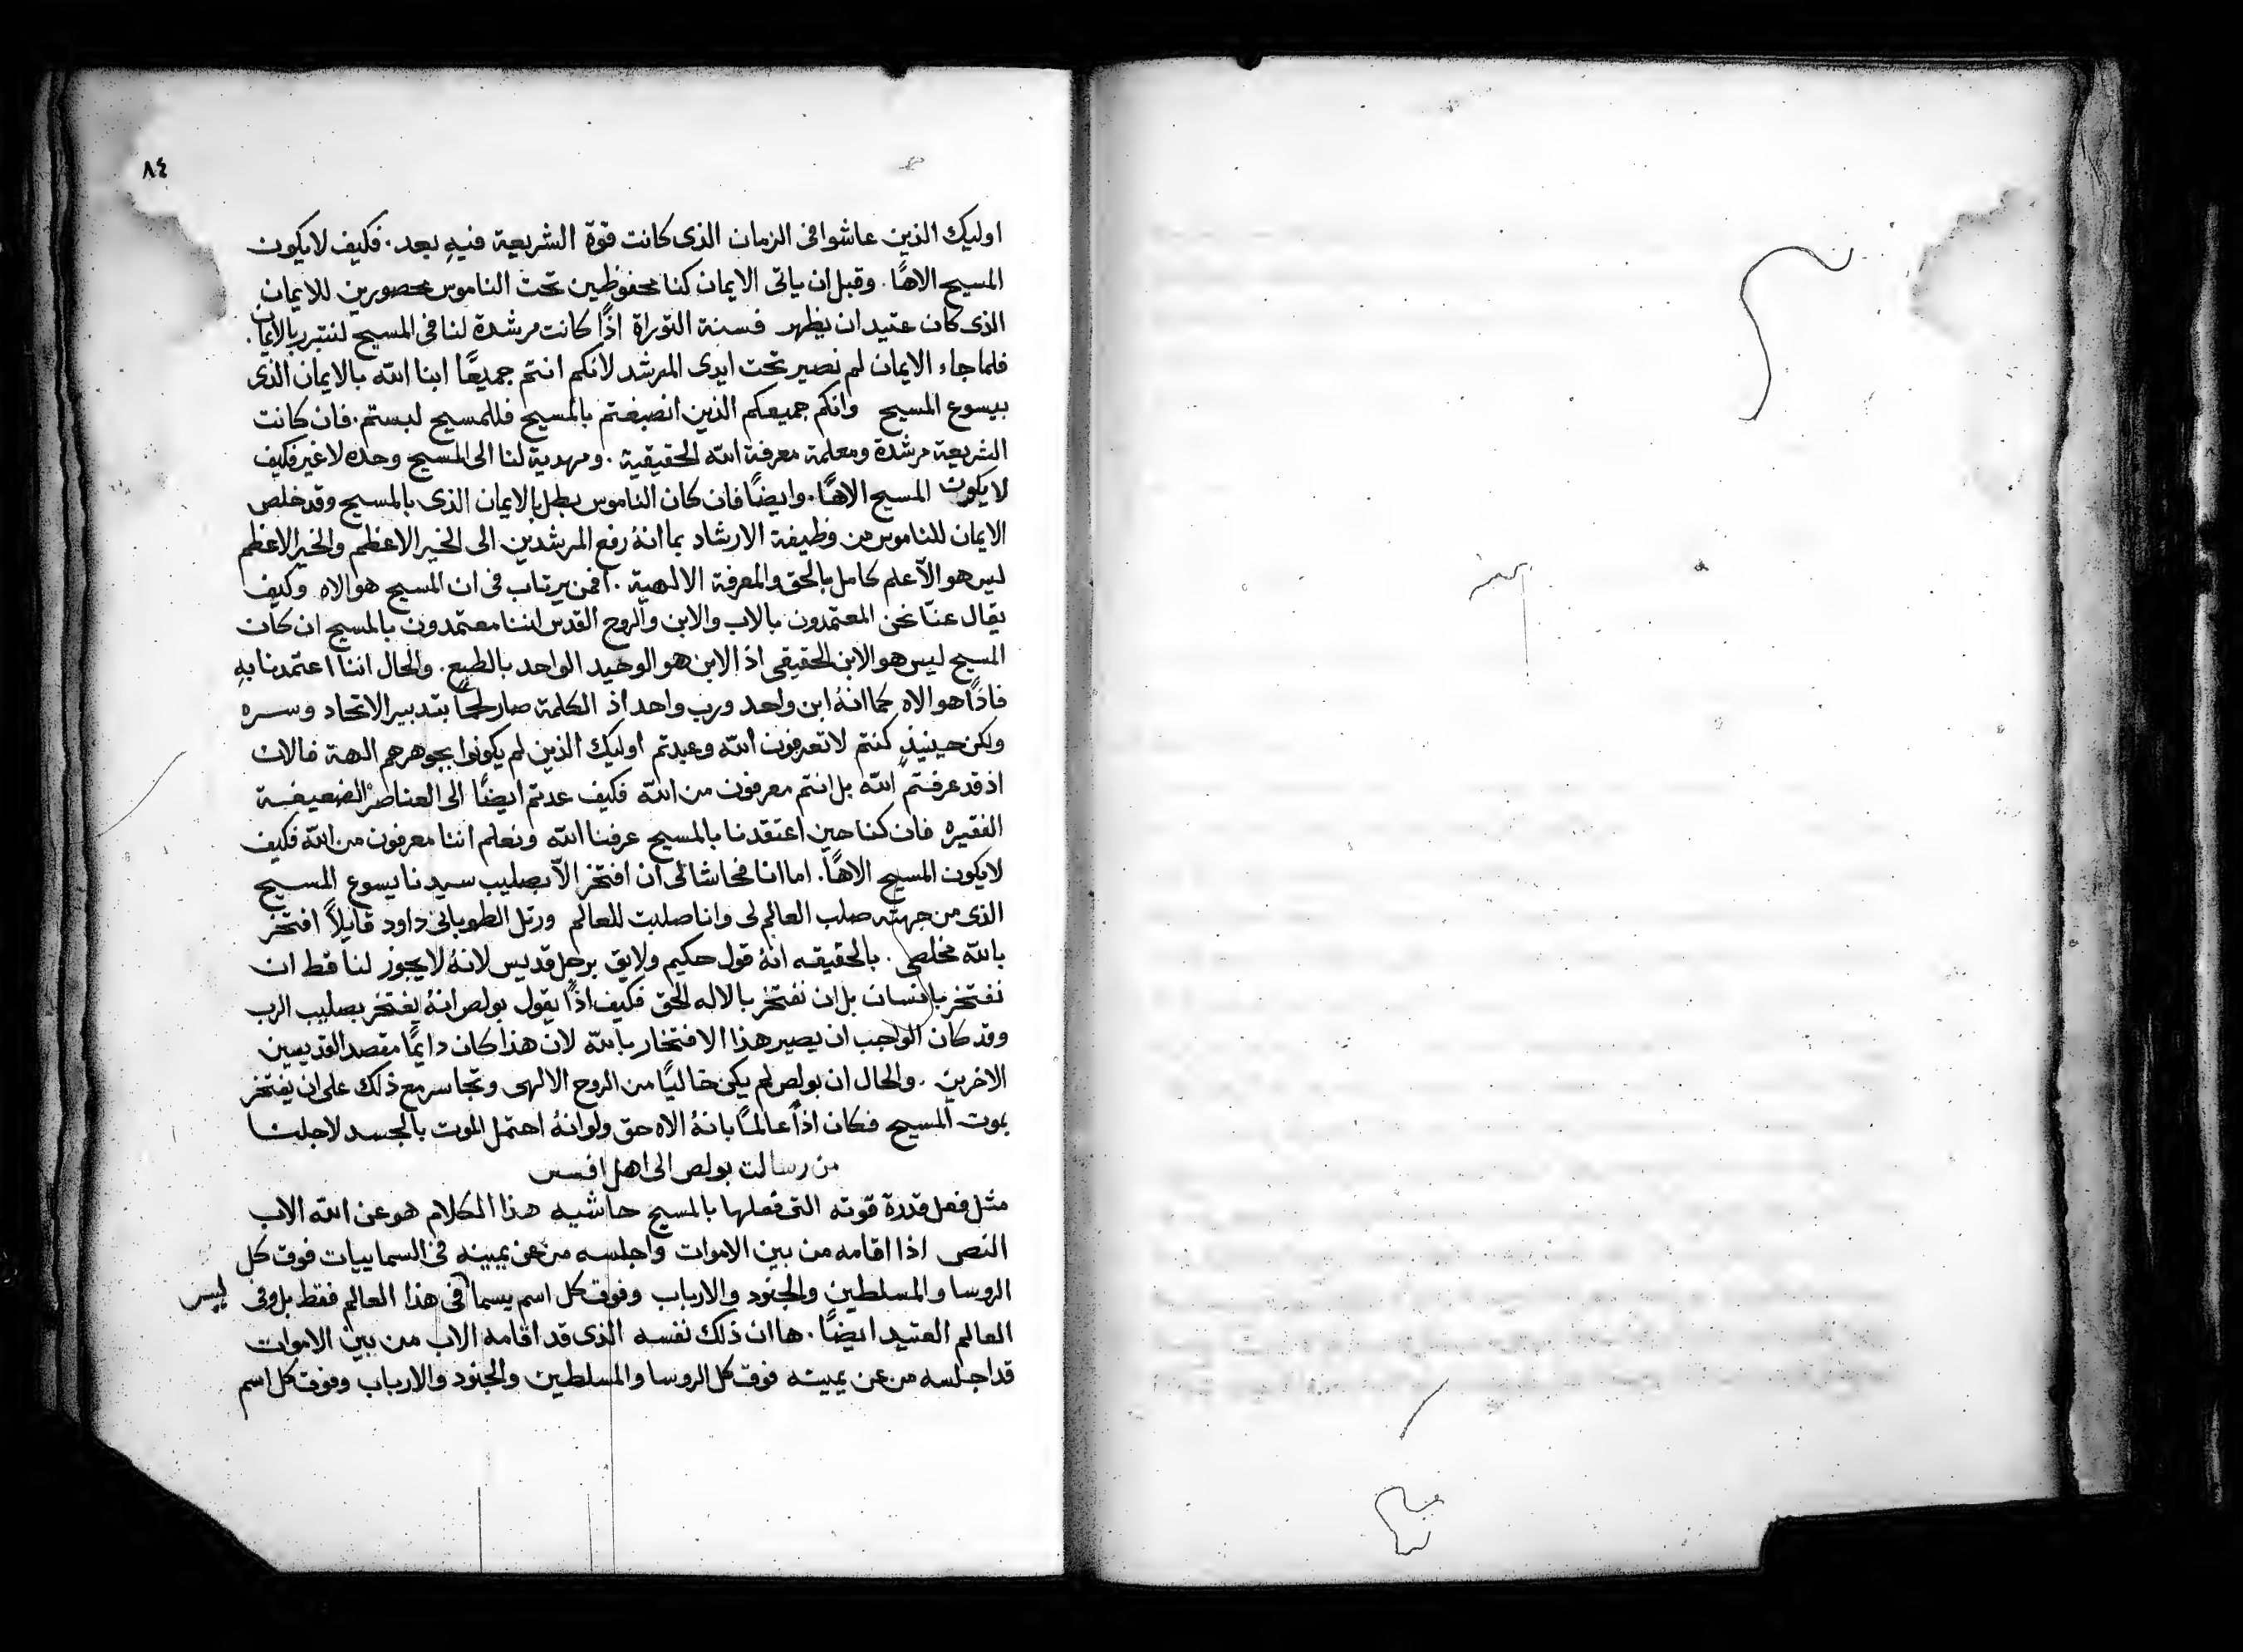 ٨٤
اوليك الذين عاشوا فى الزمان الذى كانت قوة الشريعة فيهِ بعد. فكيف لا يكون
المسيح الاهًا. وقبل ان ياتى الايمان كنا محفوظين تحت الناموس محصورين للايمان
الذى كان عتيد ان يظهر فسنة التوراة اذًا كانت مرشدة لنا فى المسيح لنتبرر بالايمان.
فلما جاء الايمان لم نصير تحت ايدى المرشد لانكم انتم جميعًا ابنا الله بالايمان الذى
بيسوع المسيح وانكم جميعكم الذين انصبغتم بالمسيح فللمسيح لبستم. فان كانت
الشريعة مرشدة ومعلمة معرفة الله الحقيقية. ومهدية لنا الى المسيح وحده لا غير فكيف
لا يكون المسيح الاهًا. وايضًا فان كان الناموس بطل بالايمان الذى بالمسيح وقد خلص
الايمان للناموس من وظيفة الارشاد بما انهُ رفع المرشدين الى الخير الاعظم والخير الاعظم
ليس هو الّا علم كامل بالحق والمعرفة الالهية. افمن يرتاب فى ان المسيح هو الاه وكيف
يقال عنّا نحن المعتمدون بالاب والابن والروح القدس اننا معتمدون بالمسيح ان كان
المسيح ليس هو الابن الحقيقى اذ الابن هو الوحيد الواحد بالطبع. والحال اننا اعتمدنا بهِ
فاذًا هو الاه كما انهُ ابن واحد ورب واحد اذ الكلمة صار لحمًا بتدبير الاتحاد وسره
ولكن حينيذٍ كنتم لا تعرفون الله وعبدتم اوليك الذين لم يكونوا بجوهرهم الهة فالان
اذ قد عرفتم الله بل انتم معرفون من الله فكيف عدتم ايضًا الى العناصر الضعيفة
الفقيره فان كنا حين اعتقدنا بالمسيح عرفنا الله ونعلم اننا معرفون من الله فكيف
لا يكون المسيح الاهًا. اما انا فحاشا لى ان افتخر الّا بصليب سيدنا يسوع المسيح
الذى من جهته صلب العالم لى وانا صلبت للعالم ورتل الطوبانى داود قايلًا افتخر
بالله مخلصى. بالحقيقه انهُ قول حكيم ولايق برجل قديس لانهُ لا يجوز لنا قط ان
نفتخر بانسان بل ان نفتخر بالاله الحق فكيف اذًا يقول بولص انهُ يفتخر بصليب الرب
وقد كان الواجب ان يصير هذا الافتخار بالله لان هذا كان دايمًا مقصد القديسين
الاخرين. والحال ان بولص لم يكن خاليًا من الروح الالهى وتجاسر مع ذلك على ان يفتخر
بموت المسيح فكان اذًا عالمًا بانهُ الاه حق ولو انهُ احتمل الموت بالجسد لاجلنا
من رسالت بولص الى اهل افسس
مثل فعل قدرة قوته التى فعلها بالمسيح حاشيه هذا الكلام هو عن الله الاب
النص اذا اقامه من بين الاموات واجلسه من عن يمينه فى السماييات فوق كل
الروسا والمسلطين والجنود والارباب وفوق كل اسم يسما فى هذا العالم فقط بل وفى
ليس
العالم العتيد ايضًا. ها ان ذلك نفسه الذى قد اقامه الاب من بين الاموات
قد اجلسه من عن يمينه فوق كل الروسا والمسلطين والجنود والارباب وفوق كل اسم